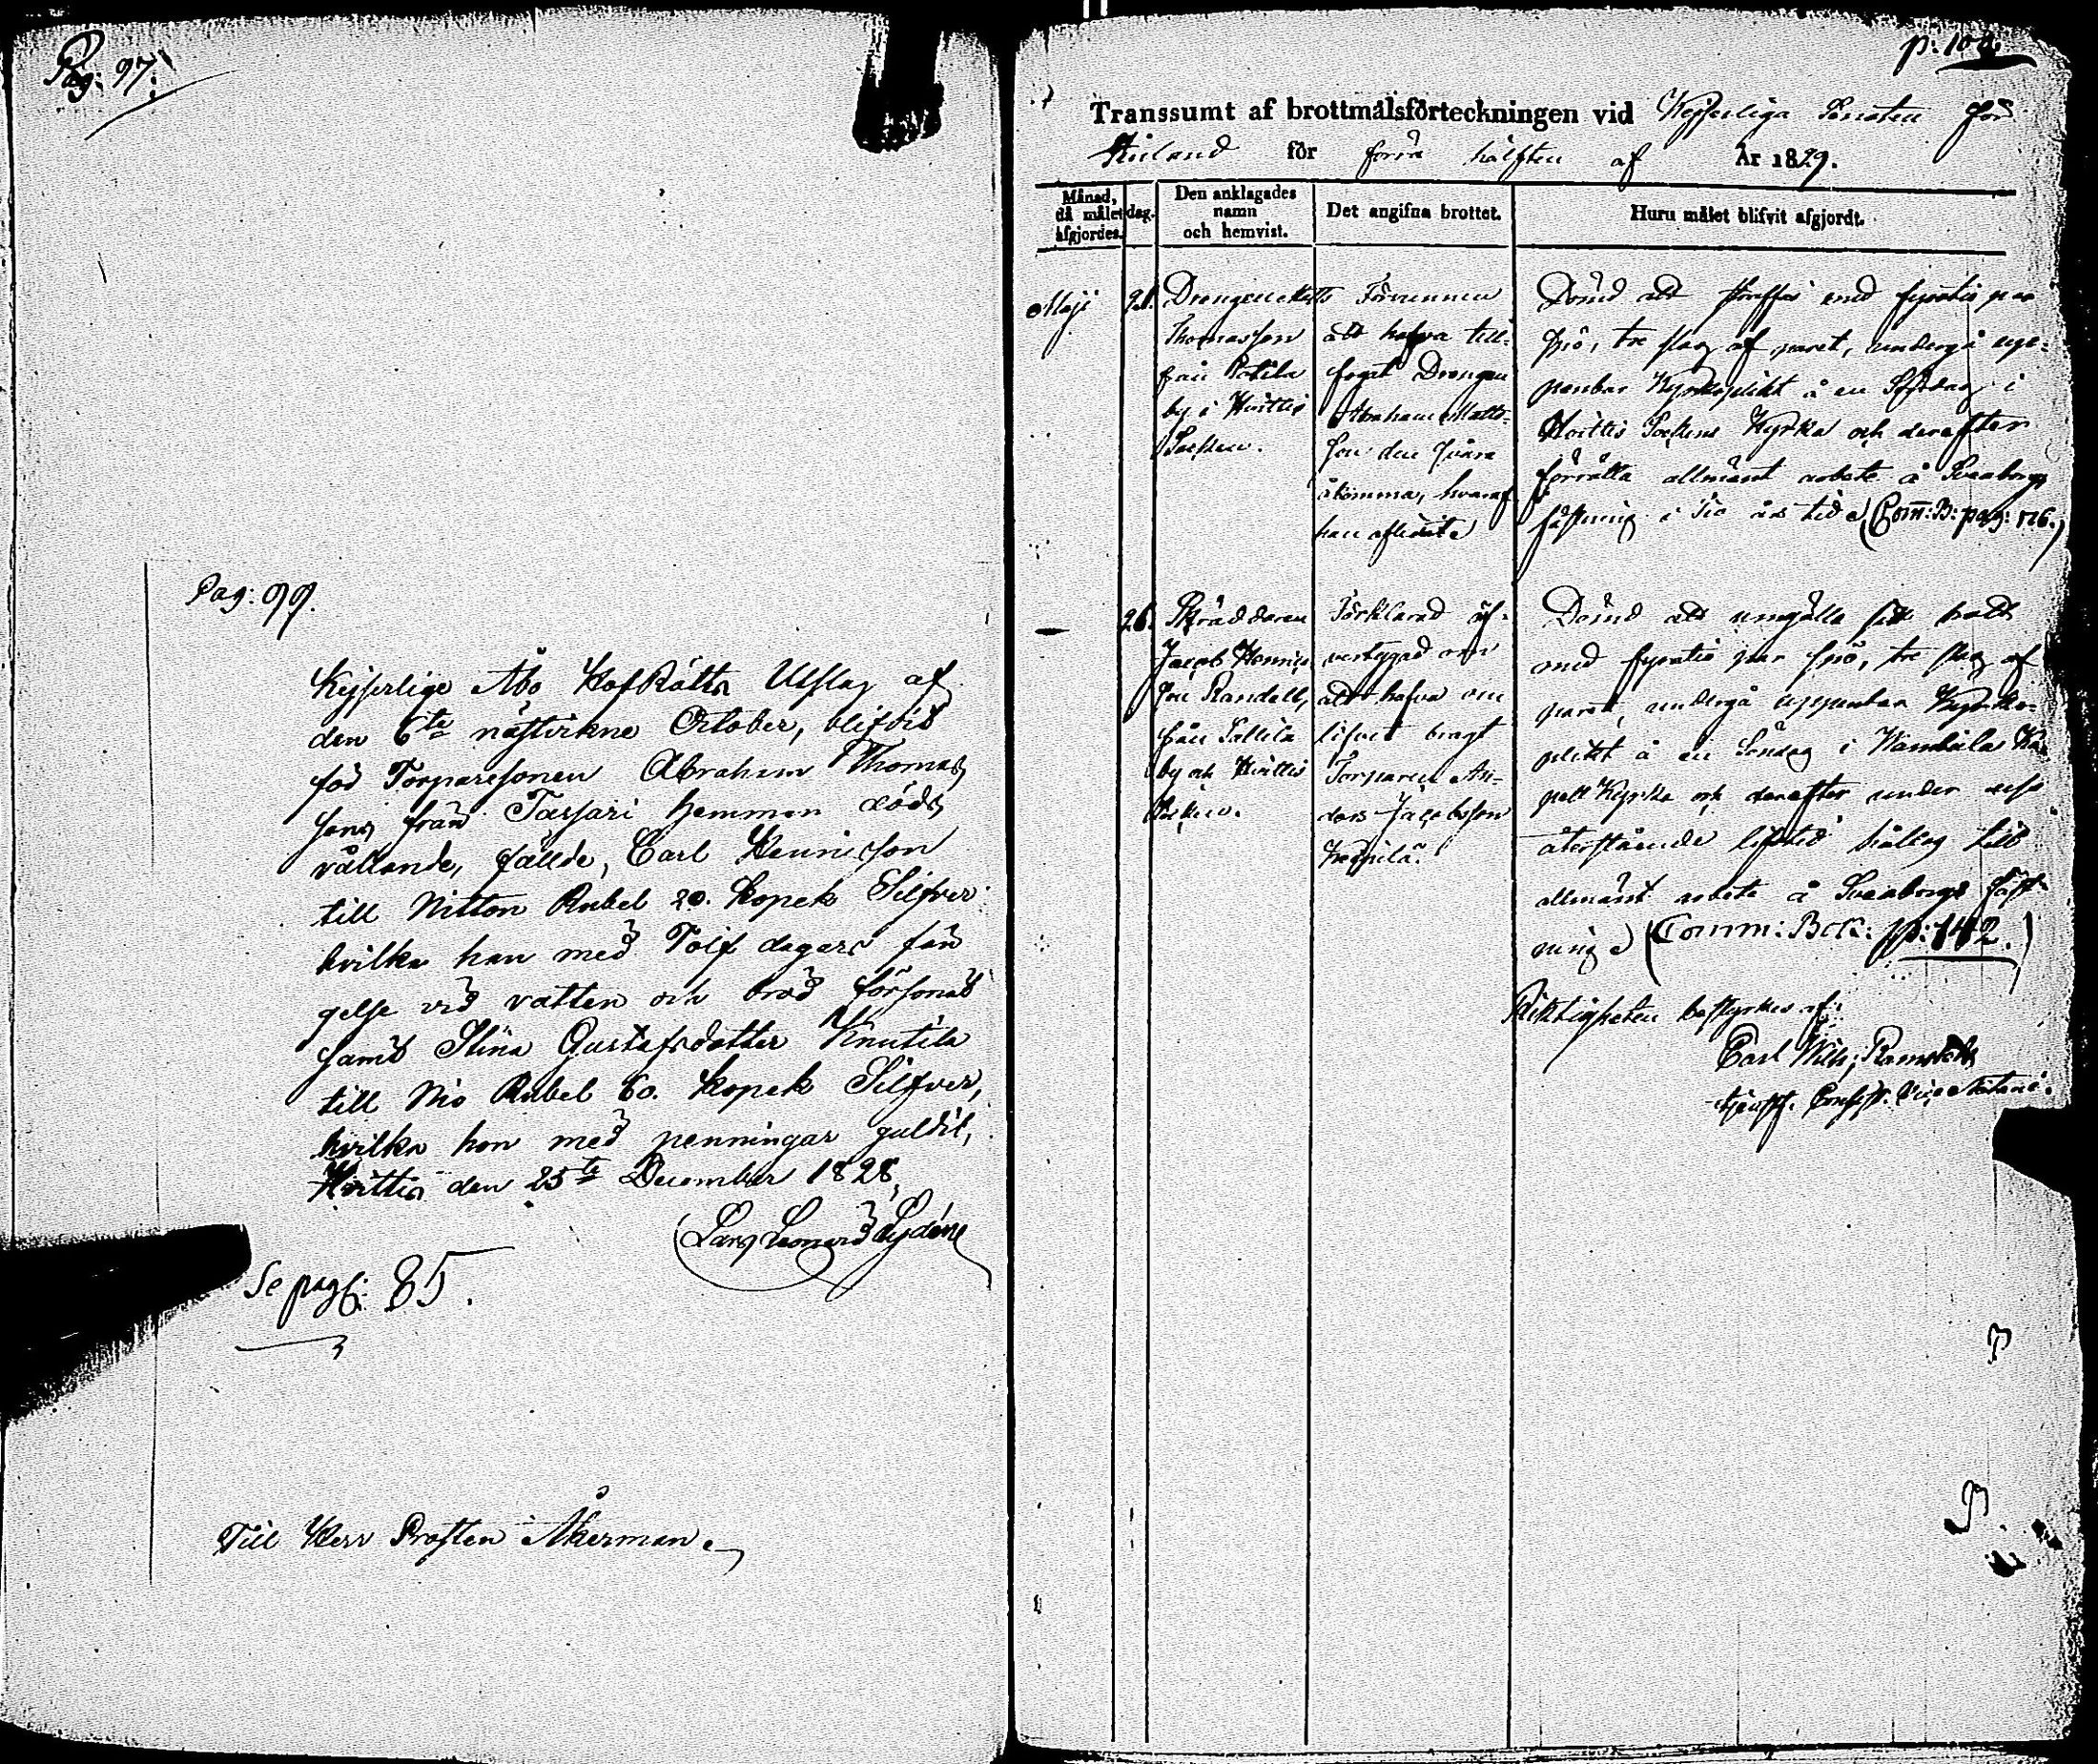 Pag: 97.
Pag: 99.
Kejserlige Åbo HofRätts Utslag af
den 6te nästvikne October, blifvit
för Torparesonen Abraham Thomas
sons från Tassari hemman döds
vållande, fällde, Carl Henricson
till Nitton Rubel 20. Kopek Silfver
hvilka han med Tolf dagars fän
gelse vid vatten och bröd försonat
samt Stina Gustafsdotter Knutila
till Nio Rubel 60. Kopek Silfver,
hvilka hon med penningar guldit,
Hvittis den 23te December 1828.
Lars Leonard
Se pag: 85.
Till Herr Prosten Åkerman
p: 109.
Transsumt af brottmålsförteckningen vid Kejserliga Senaten för
Finland för förra hälften af År 1829.
Månad, då målet afgjordes.
dag.
Den anklagades namn och hemvist.
Det angifna brottet.
Huru målet blifvit afgjordt.
Maji
21.
Drengen Matts
Thomasson
från
by i Hvittis
Socken.
Förvunnen
att hafva till-
fogat Drengen
Abraham Matts-
son den svåra
åkomma, hvaraf
han aflidit
Dömd att straffas med fyratio par
spö, tre slag af paret, undergå up-
penbar Kyrkoplikt å en Söndag i
Hvittis Sockens Kyrka och derefter
förrätta allmänt arbete å Sveaborgs
fästning i Tio års tid (Comm: B: pag: 176.)
—
26.
Skräddaren
Jacob Henrics
son Randell,
från Sallila
by och Hvittis
Socken.
Förklarad öf-
vertygad om
att hafva om
lifvet bragt
Torparen An-
ders Jacobsson
Dömd att umgälla sitt brott
med fyratio par spö, tre slag af
paret, undergå uppenbar Kyrko-
plikt å en Söndag i Ka-
pell Kyrka och derefter under
återstående lifstid hållas till
allmänt arbete å Sveaborgs fäst-
ning (Comm: Bok: p: 142.)
Riktigheten bestyrkes af:
Carl Wilh: